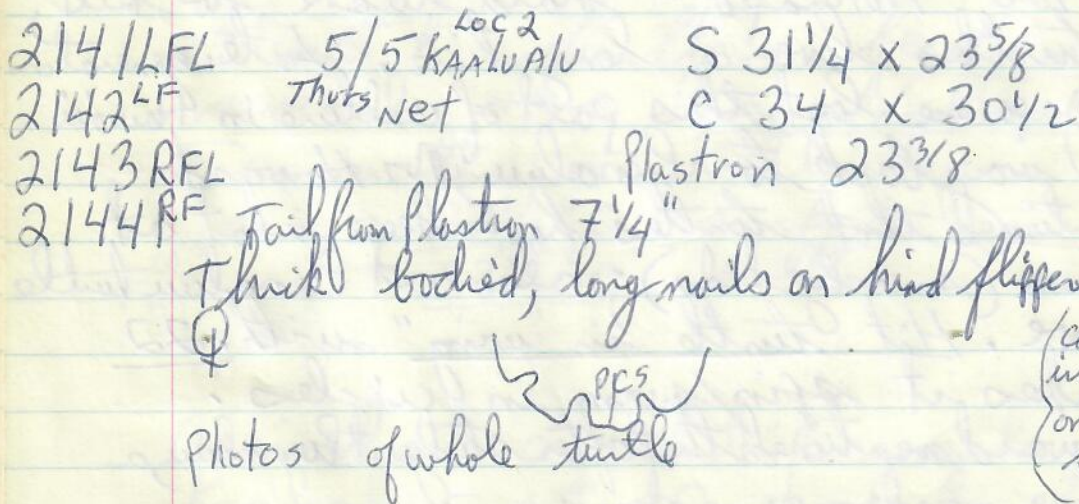 LOC 2
2141 LFL 5/5 KAALUALU S 31 1/4 x 23 5/8
2142 LF Thurs Net C 34 x 30 1/2
2143 RFL Plastron 23 3/8
2144 RF Tail from Plastron 7 1/4"
Thick bodied, long nails on hind flippers
♀
PCS
Photos of whole turtle